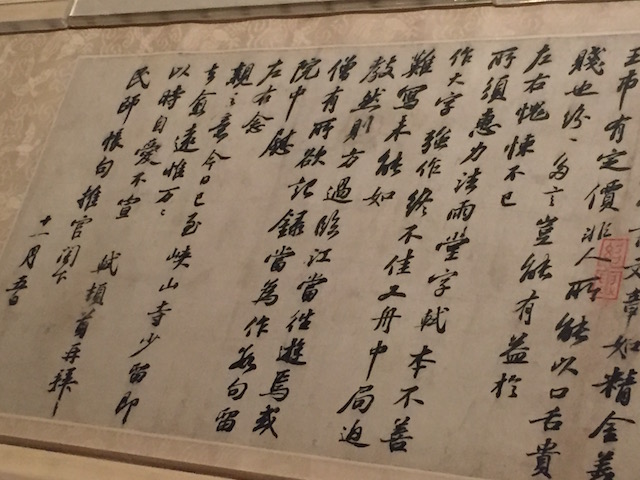 言文章如精金美
玉市有定價非人所能以口舌貴
賤也紛〻多言豈能有益於
左右愧悚不已
所須惠力法雨堂字軾本不善
作大字強作終不佳又舟中局迫
難寫未能如
教然則方過臨江當往遊焉或
僧有所欲記錄當為作數句留
院中慰
左右念
親之意今日已至峽山寺少留即
去愈遠惟万〻
以時自愛不宣 軾頓首再拜
民師帳句推官閣下
十一月五日